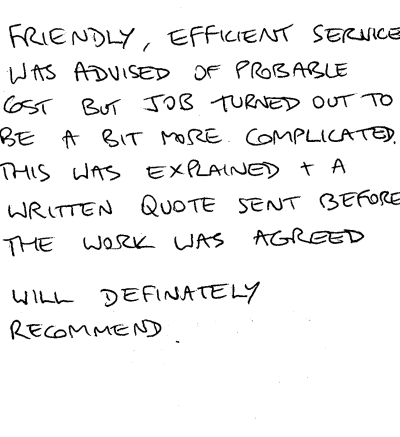 FRIENDLY, EFFICIENT SERVICE
WAS ADVISED OF PROBABLE
COST BUT JOB TURNED OUT TO
BE A BIT MORE COMPLICATED.
THIS WAS EXPLAINED + A
WRITTEN QUOTE SENT BEFORE
THE WORK WAS AGREED
WILL DEFINATELY
RECOMMEND.